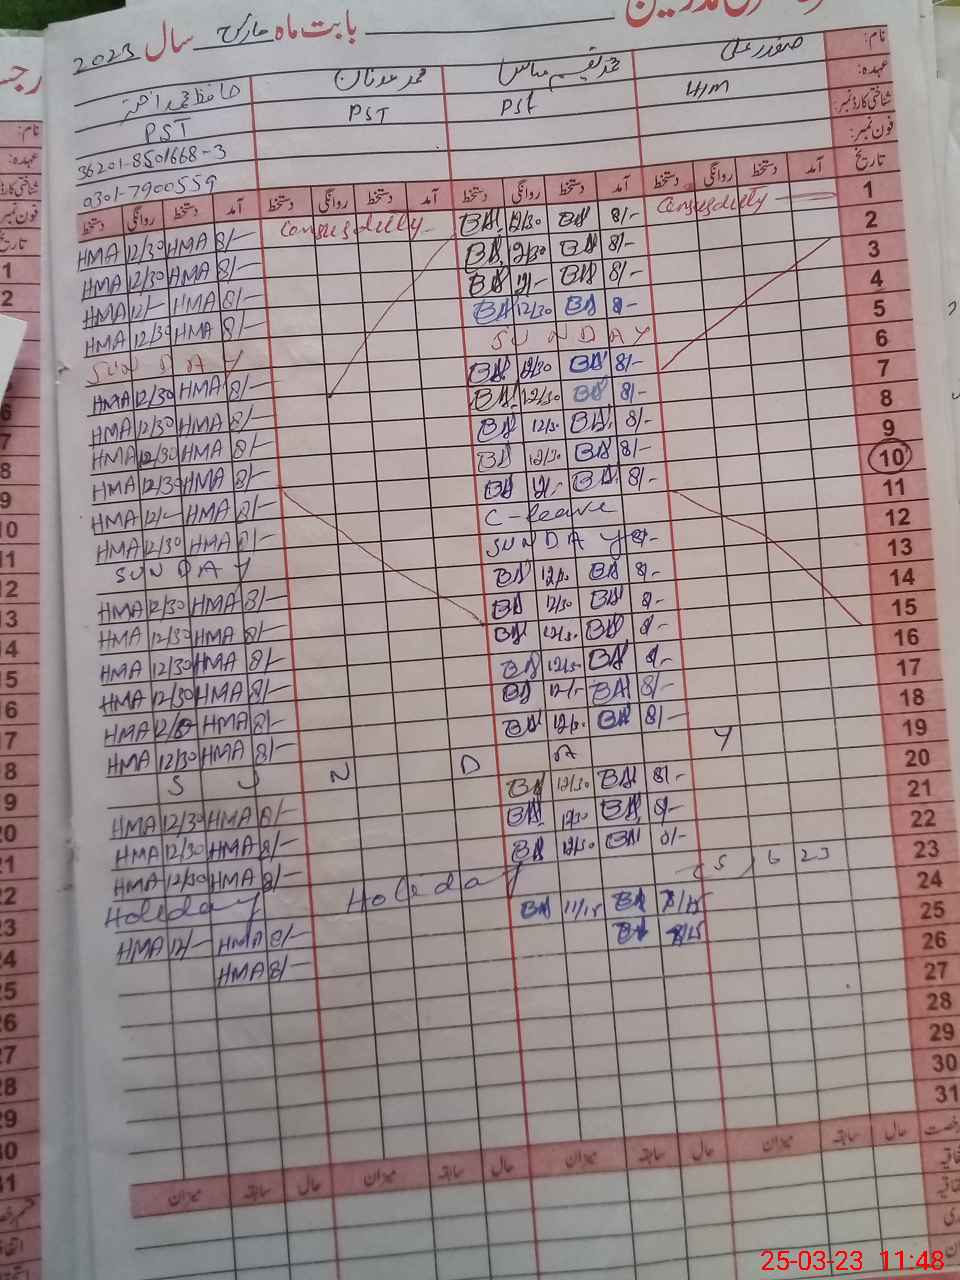 بابت ماہ مارچ سال 2023
نام: صفدر علی
حافظ محمد اختر
عہدہ: H/M PST PST PST
شناختی کارڈ نمبر: 36201-8501668-3
فون نمبر: 0301-7900559
تاریخ آمد دستخط روانگی دستخط آمد دستخط روانگی دستخط آمد دستخط روانگی دستخط آمد دستخط روانگی دستخط
1 Census duty 8/- BA 12/30 BA Census duty 8/- HMA 12/30 HMA
2 8/- BA 12/30 BA 8/- HMA 12/30 HMA
3 8/- BA 12/- BA 8/- HMA 12/- HMA
4 8/- BA 12/30 BA 8/- HMA 12/30 HMA
5 SUNDAY SUNDAY
6 8/- BA 12/30 BA 8/- HMA 12/30 HMA
7 8/- BA 12/30 BA 8/- HMA 12/30 HMA
8 8/- BA 12/30 BA 8/- HMA 12/30 HMA
9 8/- BA 12/30 BA 8/- HMA 12/30 HMA
10 8/- BA 12/- BA 8/- HMA 12/- HMA
11 C-leave 8/- HMA 12/30 HMA
12 SUNDAY SUNDAY
13 8/- BA 12/30 BA 8/- HMA 12/30 HMA
14 8/- BA 12/30 BA 8/- HMA 12/30 HMA
15 8/- BA 12/30 BA 8/- HMA 12/30 HMA
16 8/- BA 12/30 BA 8/- HMA 12/30 HMA
17 8/- BA 12/- BA 8/- HMA 12/- HMA
18 8/- BA 12/30 BA 8/- HMA 12/30 HMA
19 S U N D A Y
20 8/- BA 12/30 BA 8/- HMA 12/30 HMA
21 8/- BA 12/30 BA 8/- HMA 12/30 HMA
22 8/- BA 12/30 BA 8/- HMA 12/30 HMA
23 Holeday Holeday
24 8/15 BA 11/15 BA 8/- HMA 12/- HMA
25 8/15 BA 8/- HMA
26
27
28
29
30
31
حال سابقہ میزان حال سابقہ میزان حال سابقہ میزان حال سابقہ میزان
25-03-23 11:48